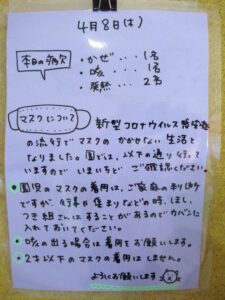 4月8日(木)
本日の病欠
・かぜ・・・1名
・咳・・・1名
・発熱・・・2名
マスクについて
新型コロナウイルス感染症
の流行でマスクのかかせない生活と
なりました。園では、以下の通り行って
いますのでいまいちどご確認ください。
園児のマスクの着用は、ご家庭の判断
ですが、行事や集まりなどの時、ほし、
つき組さんはすることがあるのでカバンに
入れておいてください。
咳の出る場合は着用をお願いします。
2才以下のマスクの着用はしません。
よろしくお願いします